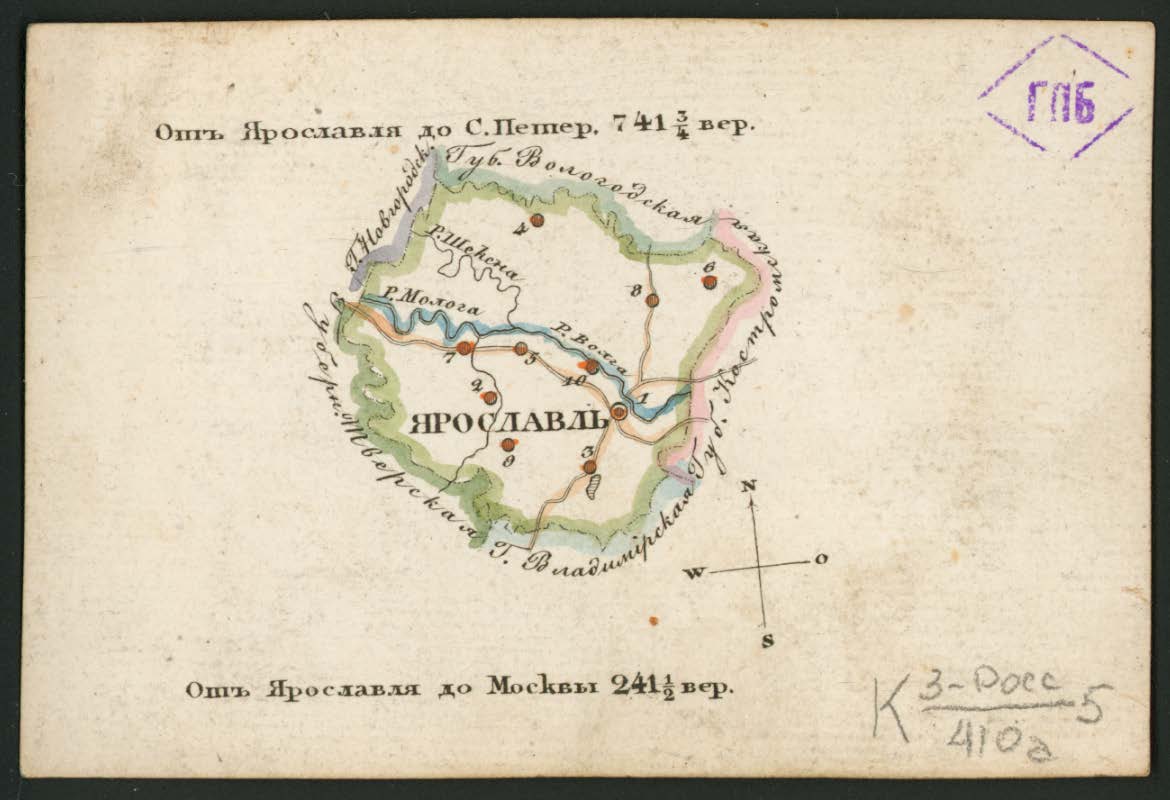 ГПБ
Отъ Ярославля до С.Петер. 741 3/4 вер.
Губ. Вологодская
Г. Новгородск.
Р. Шексна
4
6
8
Р. Молога
Р. Волга
7
5
10
2
1
ЯРОСЛАВЛЬ
9
3
Губерн. Тверская
Губ. Костромская
Г. Владимірская
N
W
O
S
Отъ Ярославля до Москвы 241 1/2 вер.
К 3-Росс 5
410а